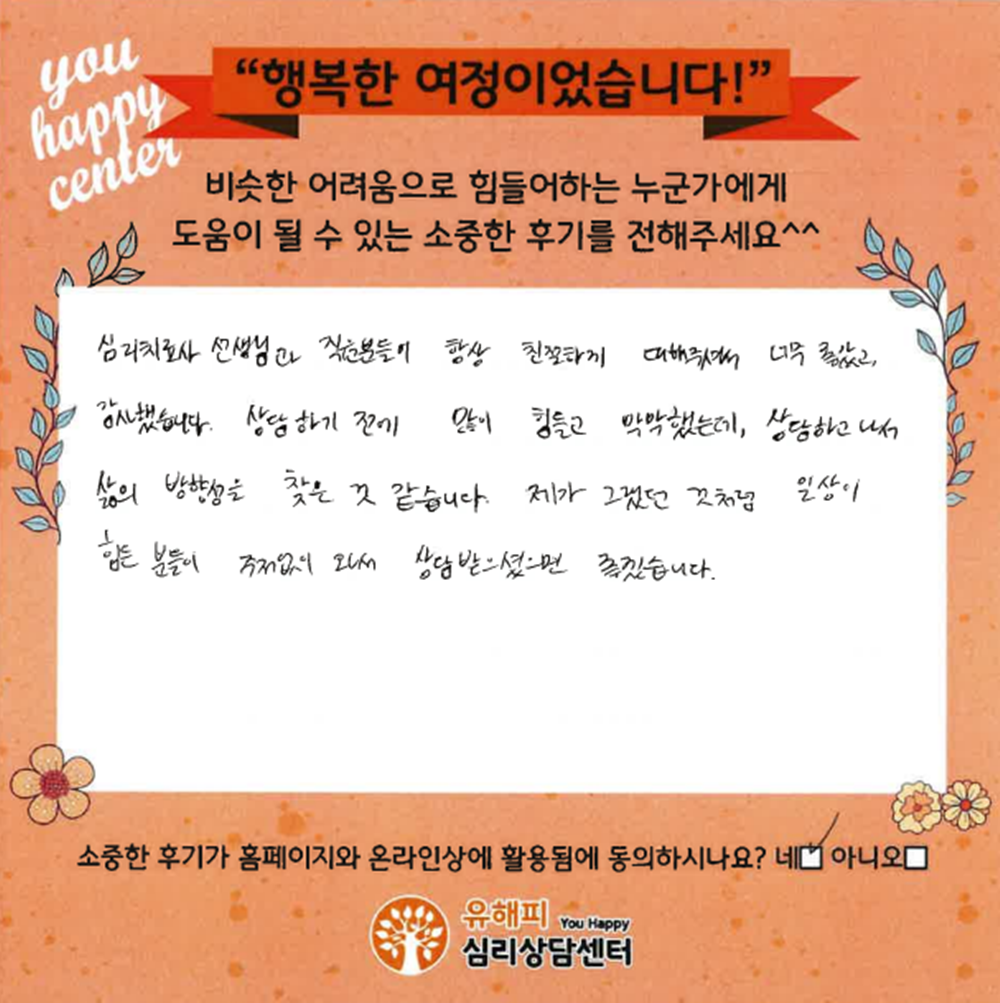 you
happy
center
“행복한 여정이었습니다!”
비슷한 어려움으로 힘들어하는 누군가에게
도움이 될 수 있는 소중한 후기를 전해주세요^^
심리치료사 선생님과 직원분들이 항상 친절하게 대해주셔서 너무 좋았고,
감사했습니다. 상담하기 전에 많이 힘들고 막막했는데, 상담하고 나서
삶의 방향성을 찾은 것 같습니다. 제가 그랬던 것처럼 일상이
힘든 분들이 주저없이 와서 상담받으셨으면 좋겠습니다.
소중한 후기가 홈페이지와 온라인상에 활용됨에 동의하시나요? 네 아니오
유해피 You Happy
심리상담센터